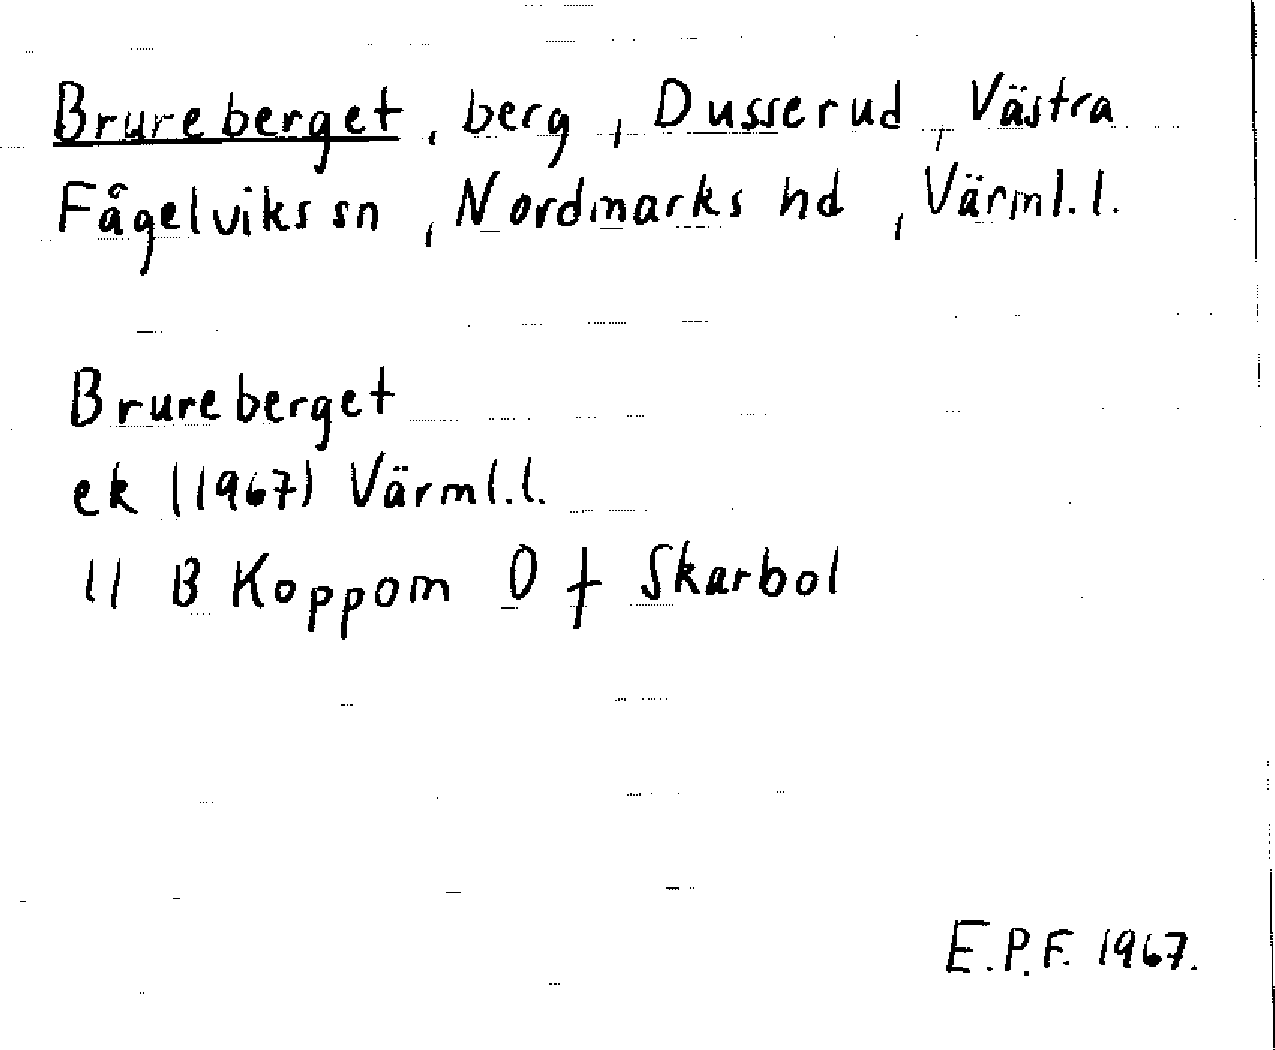 Brureberget, berg, Dusserud, Västra
Fågelviks sn, Nordmarks hd, Värml.l.
Brureberget
ek (1967) Värml.l.
11 B Koppom 0 f Skarbol
E.P.F. 1967.